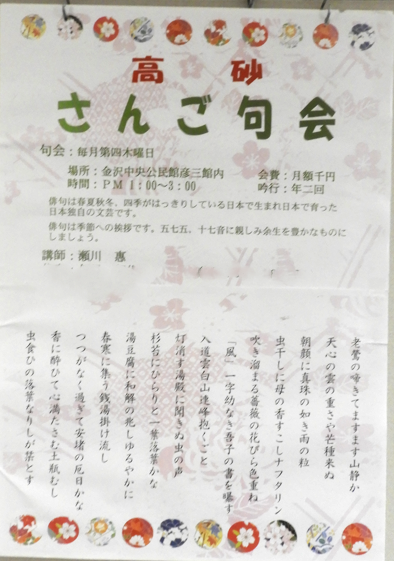 高砂
さんご句会
句会：毎月第四木曜日
場所：金沢中央公民館彦三館内
会費：月額千円
時間：ＰＭ１：００～３：００
吟行：年二回
俳句は春夏秋冬、四季がはっきりしている日本で生まれ日本で育った
日本独自の文芸です。
俳句は季節への挨拶です。五七五、十七音に親しみ余生を豊かなものに
しましょう。
講師：瀬川　惠
老鶯の啼きてますます山静か
天心の雲の重さや芒種来ぬ
朝顔に真珠の如き雨の粒
虫干しに母の香すこしナフタリン
吹き溜まる薔薇の花びら色重ね
「風」一字幼なき吾子の書を曝す
入道雲白山連峰抱くごと
灯消す湯殿に聞きぬ虫の声
杉苔にひらりと一葉落葉かな
湯豆腐に和解の兆しゆるやかに
春寒に集う銭湯掛け流し
つつがなく過ぎて安堵の厄日かな
香に酔ひて心満たさむ土瓶むし
虫食ひの落葉なりしが栞とす